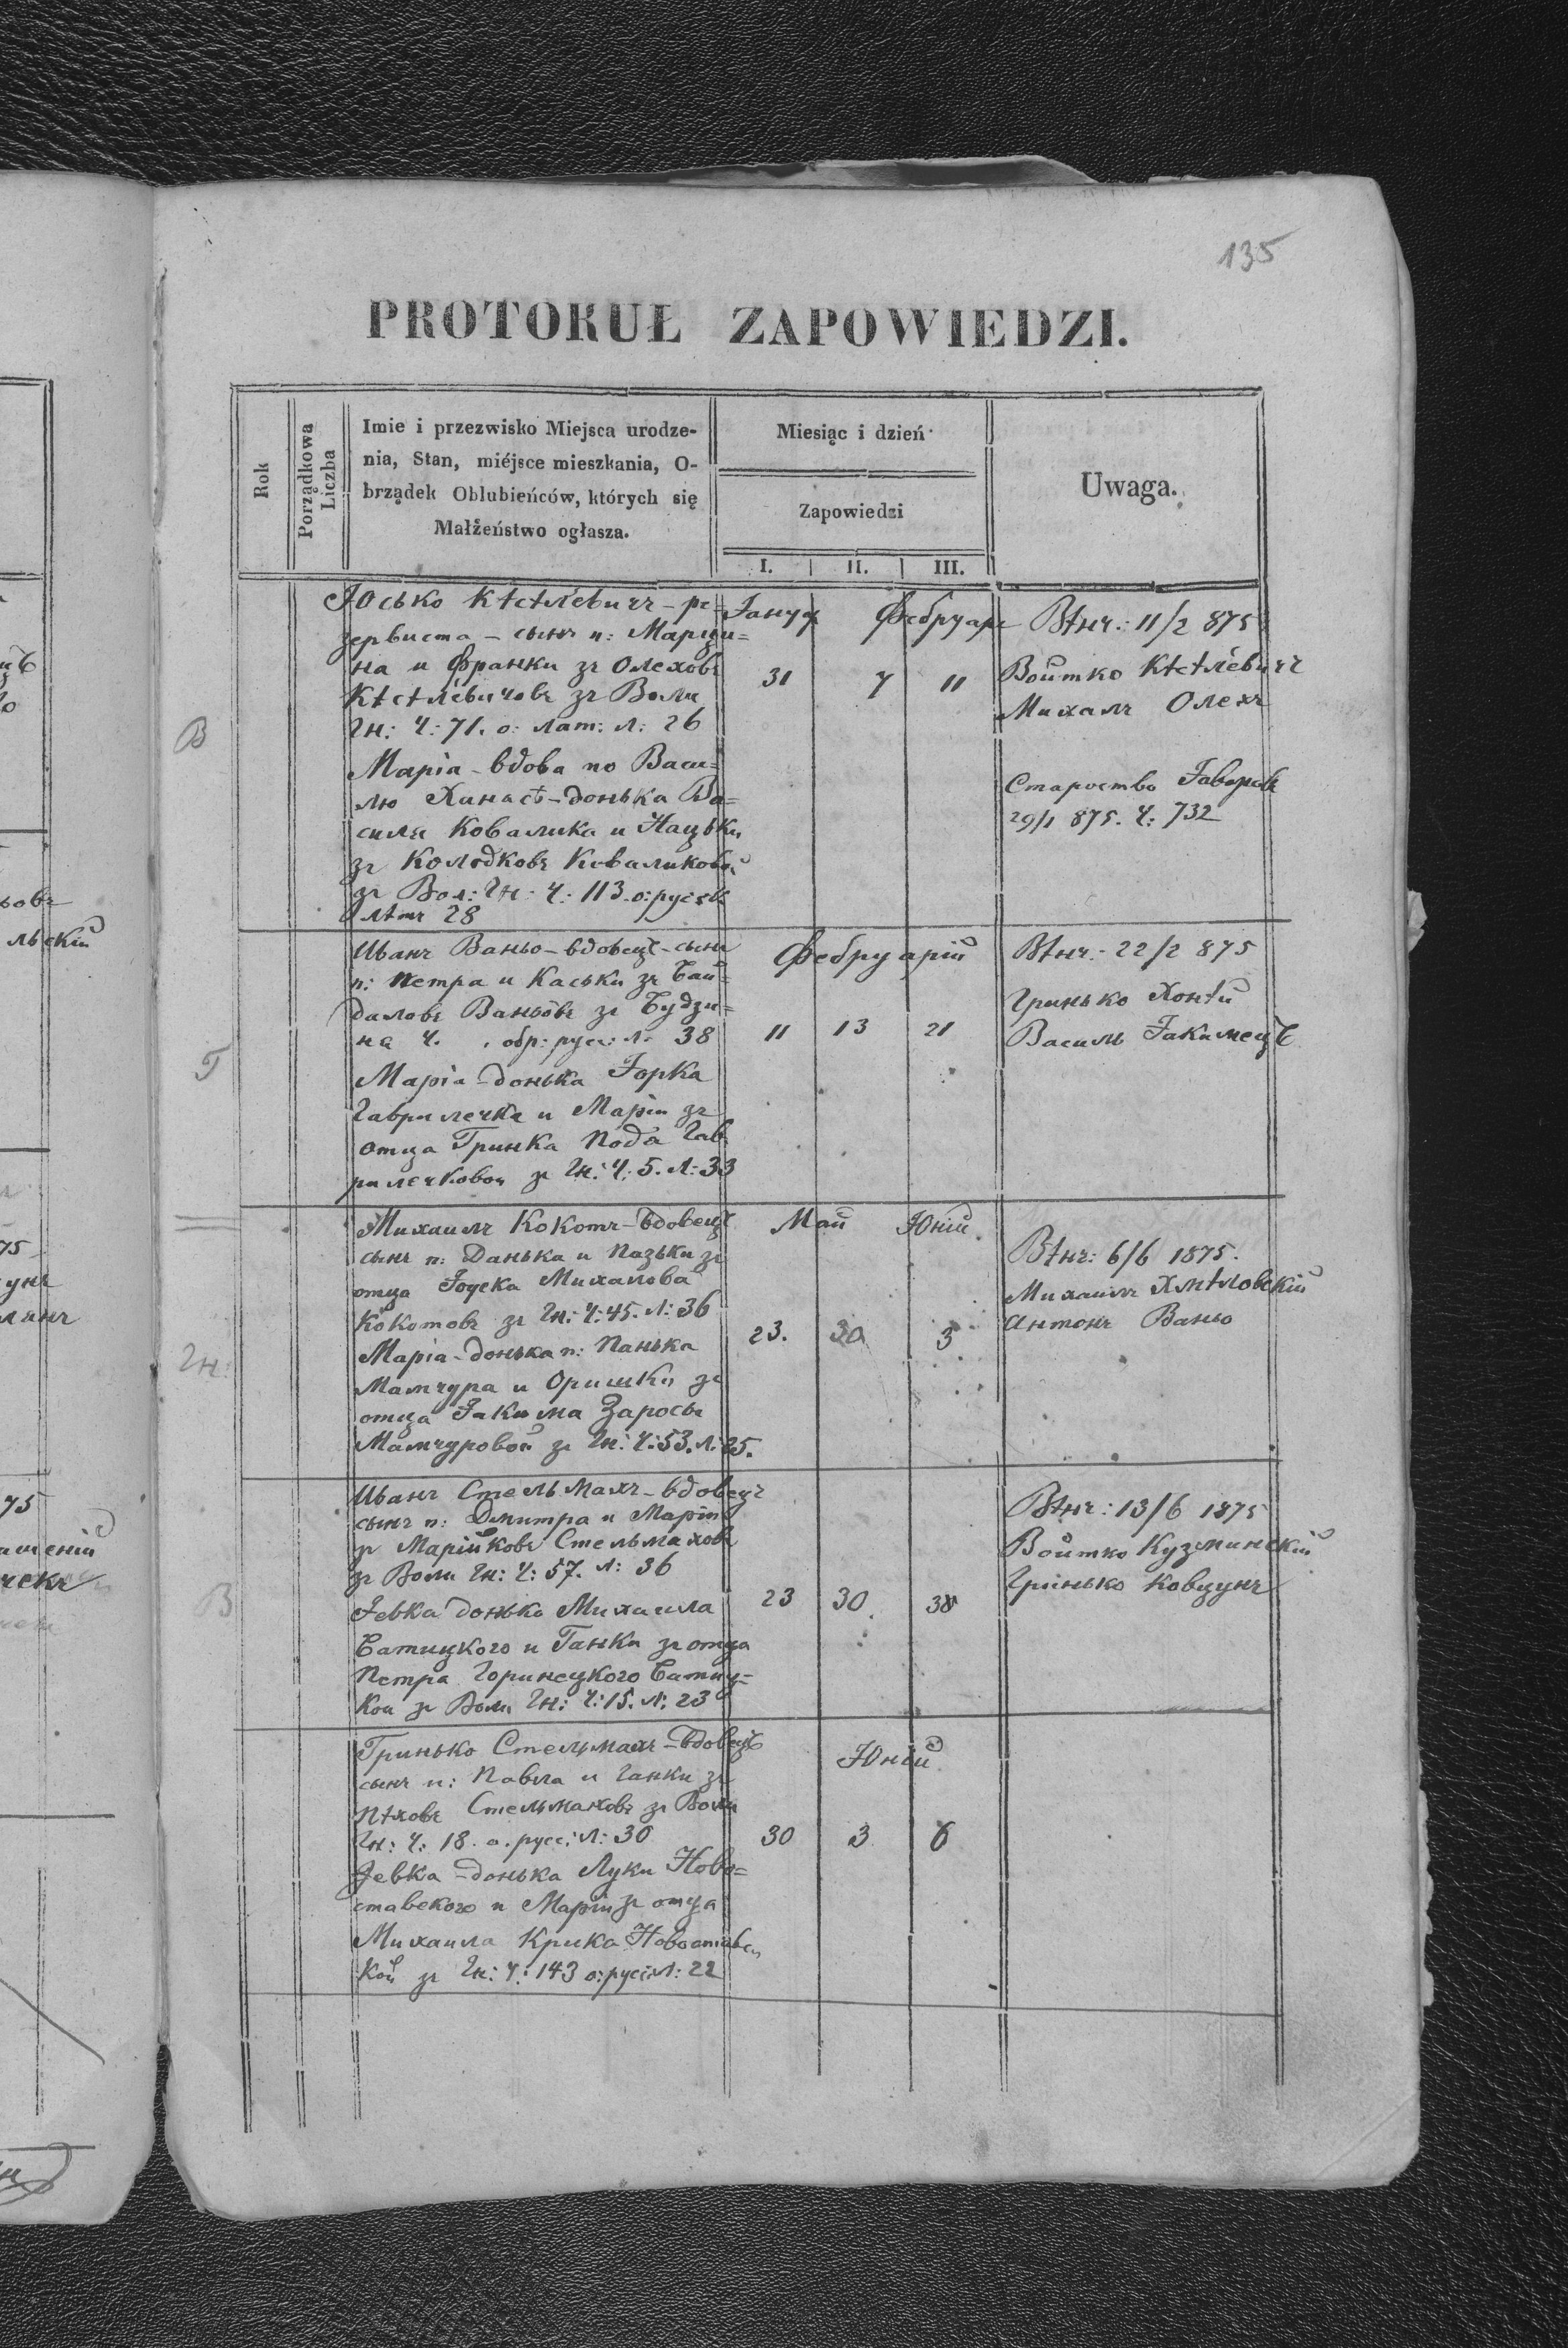 135
PROTOKUŁ ZAPOWIEDZI.
Rok
Porządkowa Liczba
Imie i przezwisko Miejsca urodze-
nia, Stan, miéjsce mieszkania, O-
brządek Oblubieńców, których się
Małżeństwo ogłasza.
Miesiąc i dzień
Zapowiedzi
I. II. III.
Uwaga.
В
Юсько Кѣстлевичъ - ре-
зервиста - сынъ п: Марци=
на и Франки зъ Олеховъ
Кѣстлевичовъ зъ Воли
Гн: Ч: 71. о: лат: л: 26
Марія - вдова по Васи=
лю Хинастъ - донька Ва=
силя Ковалика и Нацьки
зъ Колодковъ Коваликовой
зъ Вол: Гн: Ч: 113. о: руск
лѣтъ 28
Януар Фебруаръ
31 7 11
Вѣнч.: 11/2 875
Войтко Кѣстлевичъ
Михалъ Олехъ
Староство Яворовъ
29/1 875. Ч: 732
Г
Иванъ Ваньо - вдовецъ - сынъ
п: Петра и Каськи зъ Бай=
даловъ Ваньôвъ зъ Будзи=
на Ч. обр: русс: л: 38
Марія - донька Юрка
Гаврилечка и Маріи зъ
отца Гринка Пода Гав
рилечковои зъ Гн: Ч: 5. Л: 33
Фебруарій
11 13 21
Вѣнч.: 22/2 875
Гринько Хонѣй
Василь Якимецъ
Гн:
Михаилъ Кокотъ - вдовецъ
сынъ п: Данька и Пазьки зъ
отца Яцека Михалова
Кокотовъ зъ Гн: Ч: 45. л: 36
Марія - донька п: Панька
Мамчура и Оришки зъ
отца Якима Заросы
Мамчуровой зъ Гн: Ч: 53. л: 25.
Май Юній
23. 30 3
Вѣнч: 6/6 1875.
Михаилъ Хмѣловскій
Антонъ Ваньо
В
Иванъ Стельмахъ - вдовецъ
сынъ п: Дмитра и Маріи
зъ Марійковъ Стельмаховъ
зъ Воли Гн: Ч: 57. л: 36
Євка донька Михаила
Батицкого и Ганки зъ отца
Петра Горинецкого Батиц=
кои зъ Воли Гн: Ч: 15. л: 23
23 30
Вѣнч: 13/6 1875
Войтко Кузминскій
Гринько Ковцунъ
Гринько Стельмахъ - вдовецъ
сынъ п: Павла и Ганки зъ
Пѣховъ Стельмаховъ зъ Воли
Гн: Ч: 18. о. русс: л: 30
Євка - донька Луки Ново=
ставского и Маріи зъ отца
Михаила Крика Новоставс
кой зъ Гн: Ч: 143 о: рус: л: 22
Юній
30 3 6